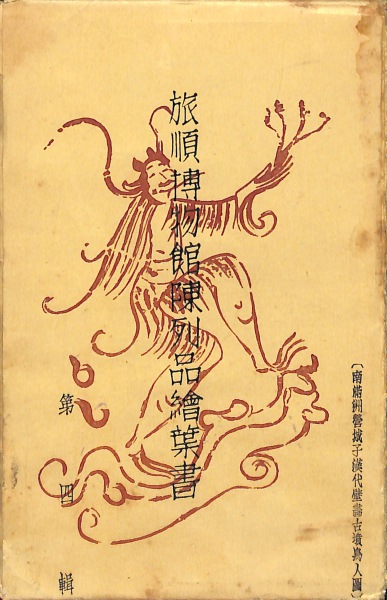 旅順博物館陳列品繪葉書
第四輯
〔南滿洲營城子漢代壁畵古墳鳥人圖〕